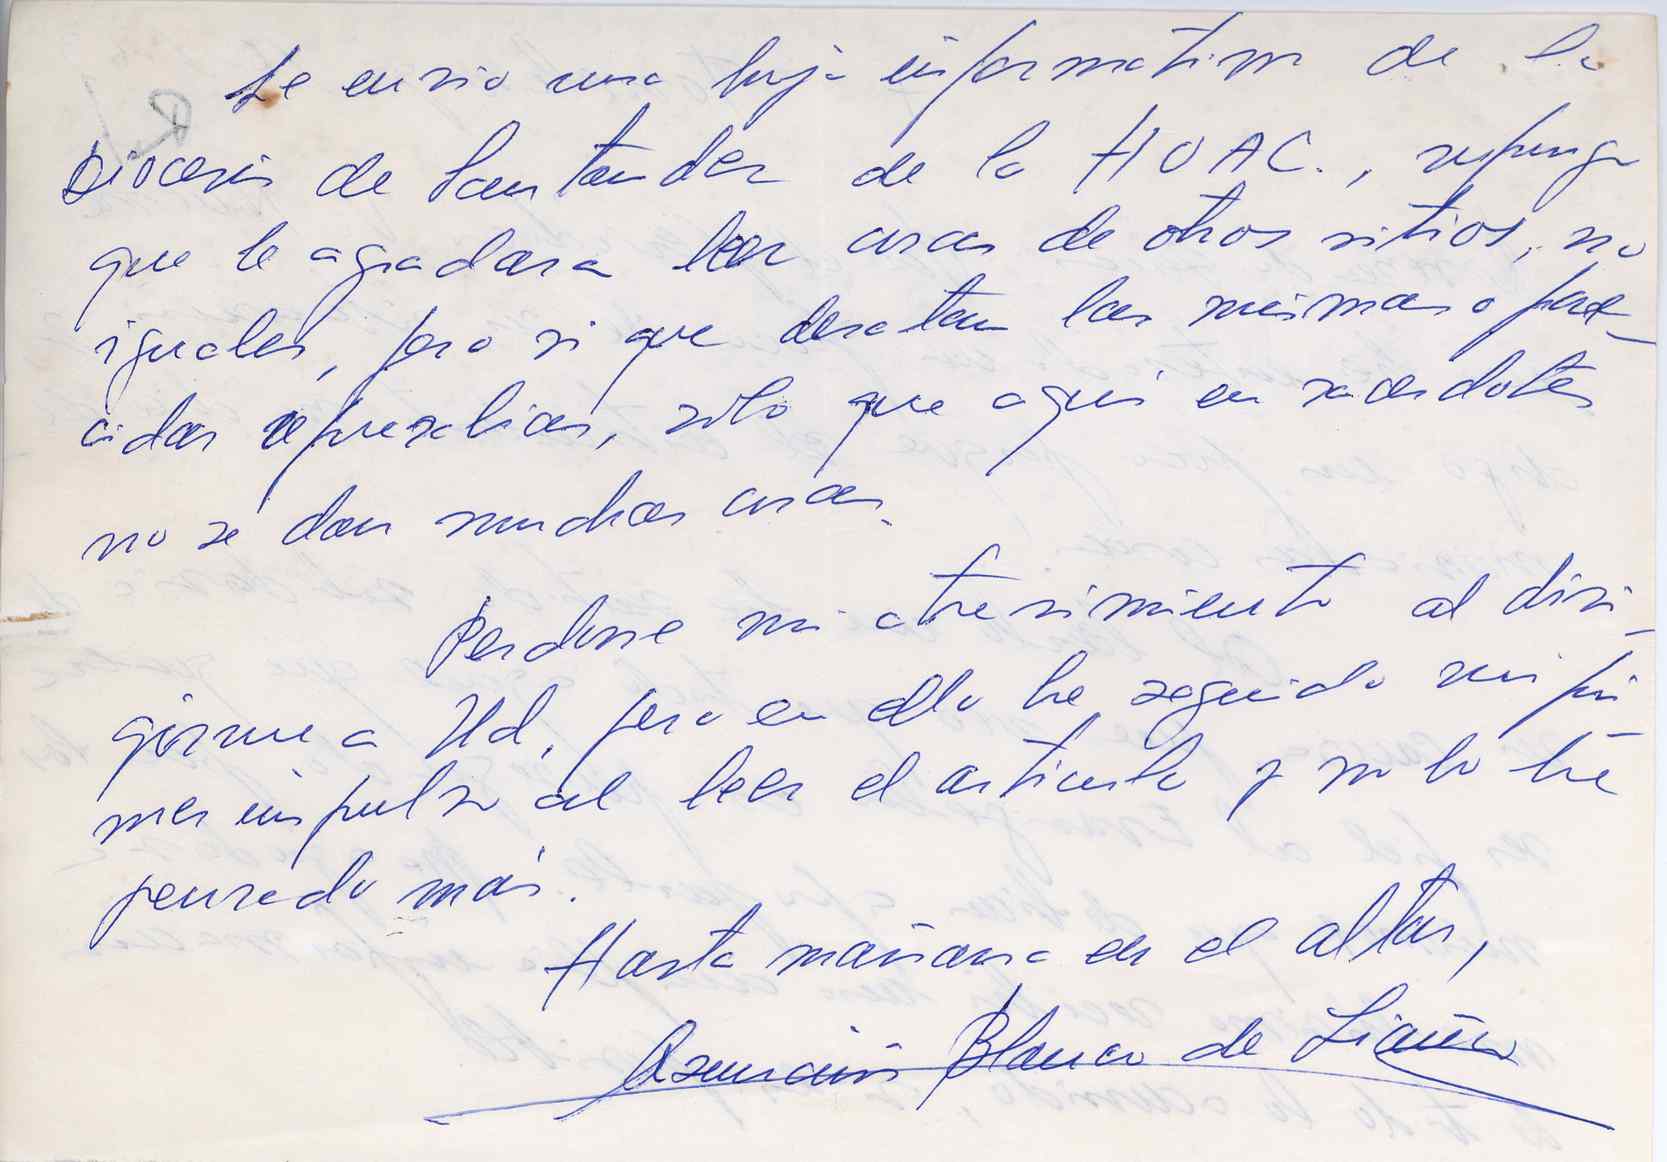 Le envio una hoja informativa de la
Diocesis de Santander de la HOAC., supongo
que le agradara leer cosas de otros sitios, no
iguales, pero si que desatan las mismas o pare-
cidas represalias, solo que aqui en sacerdotes
no se dan muchas cosas.
Perdone mi atrevimiento al diri-
girme a Ud, pero en ello he seguido mi pri-
mer impulso al leer el articulo y no lo he
pensado más.
Hasta mañana en el altar,
Asunción Blanco de Liaño